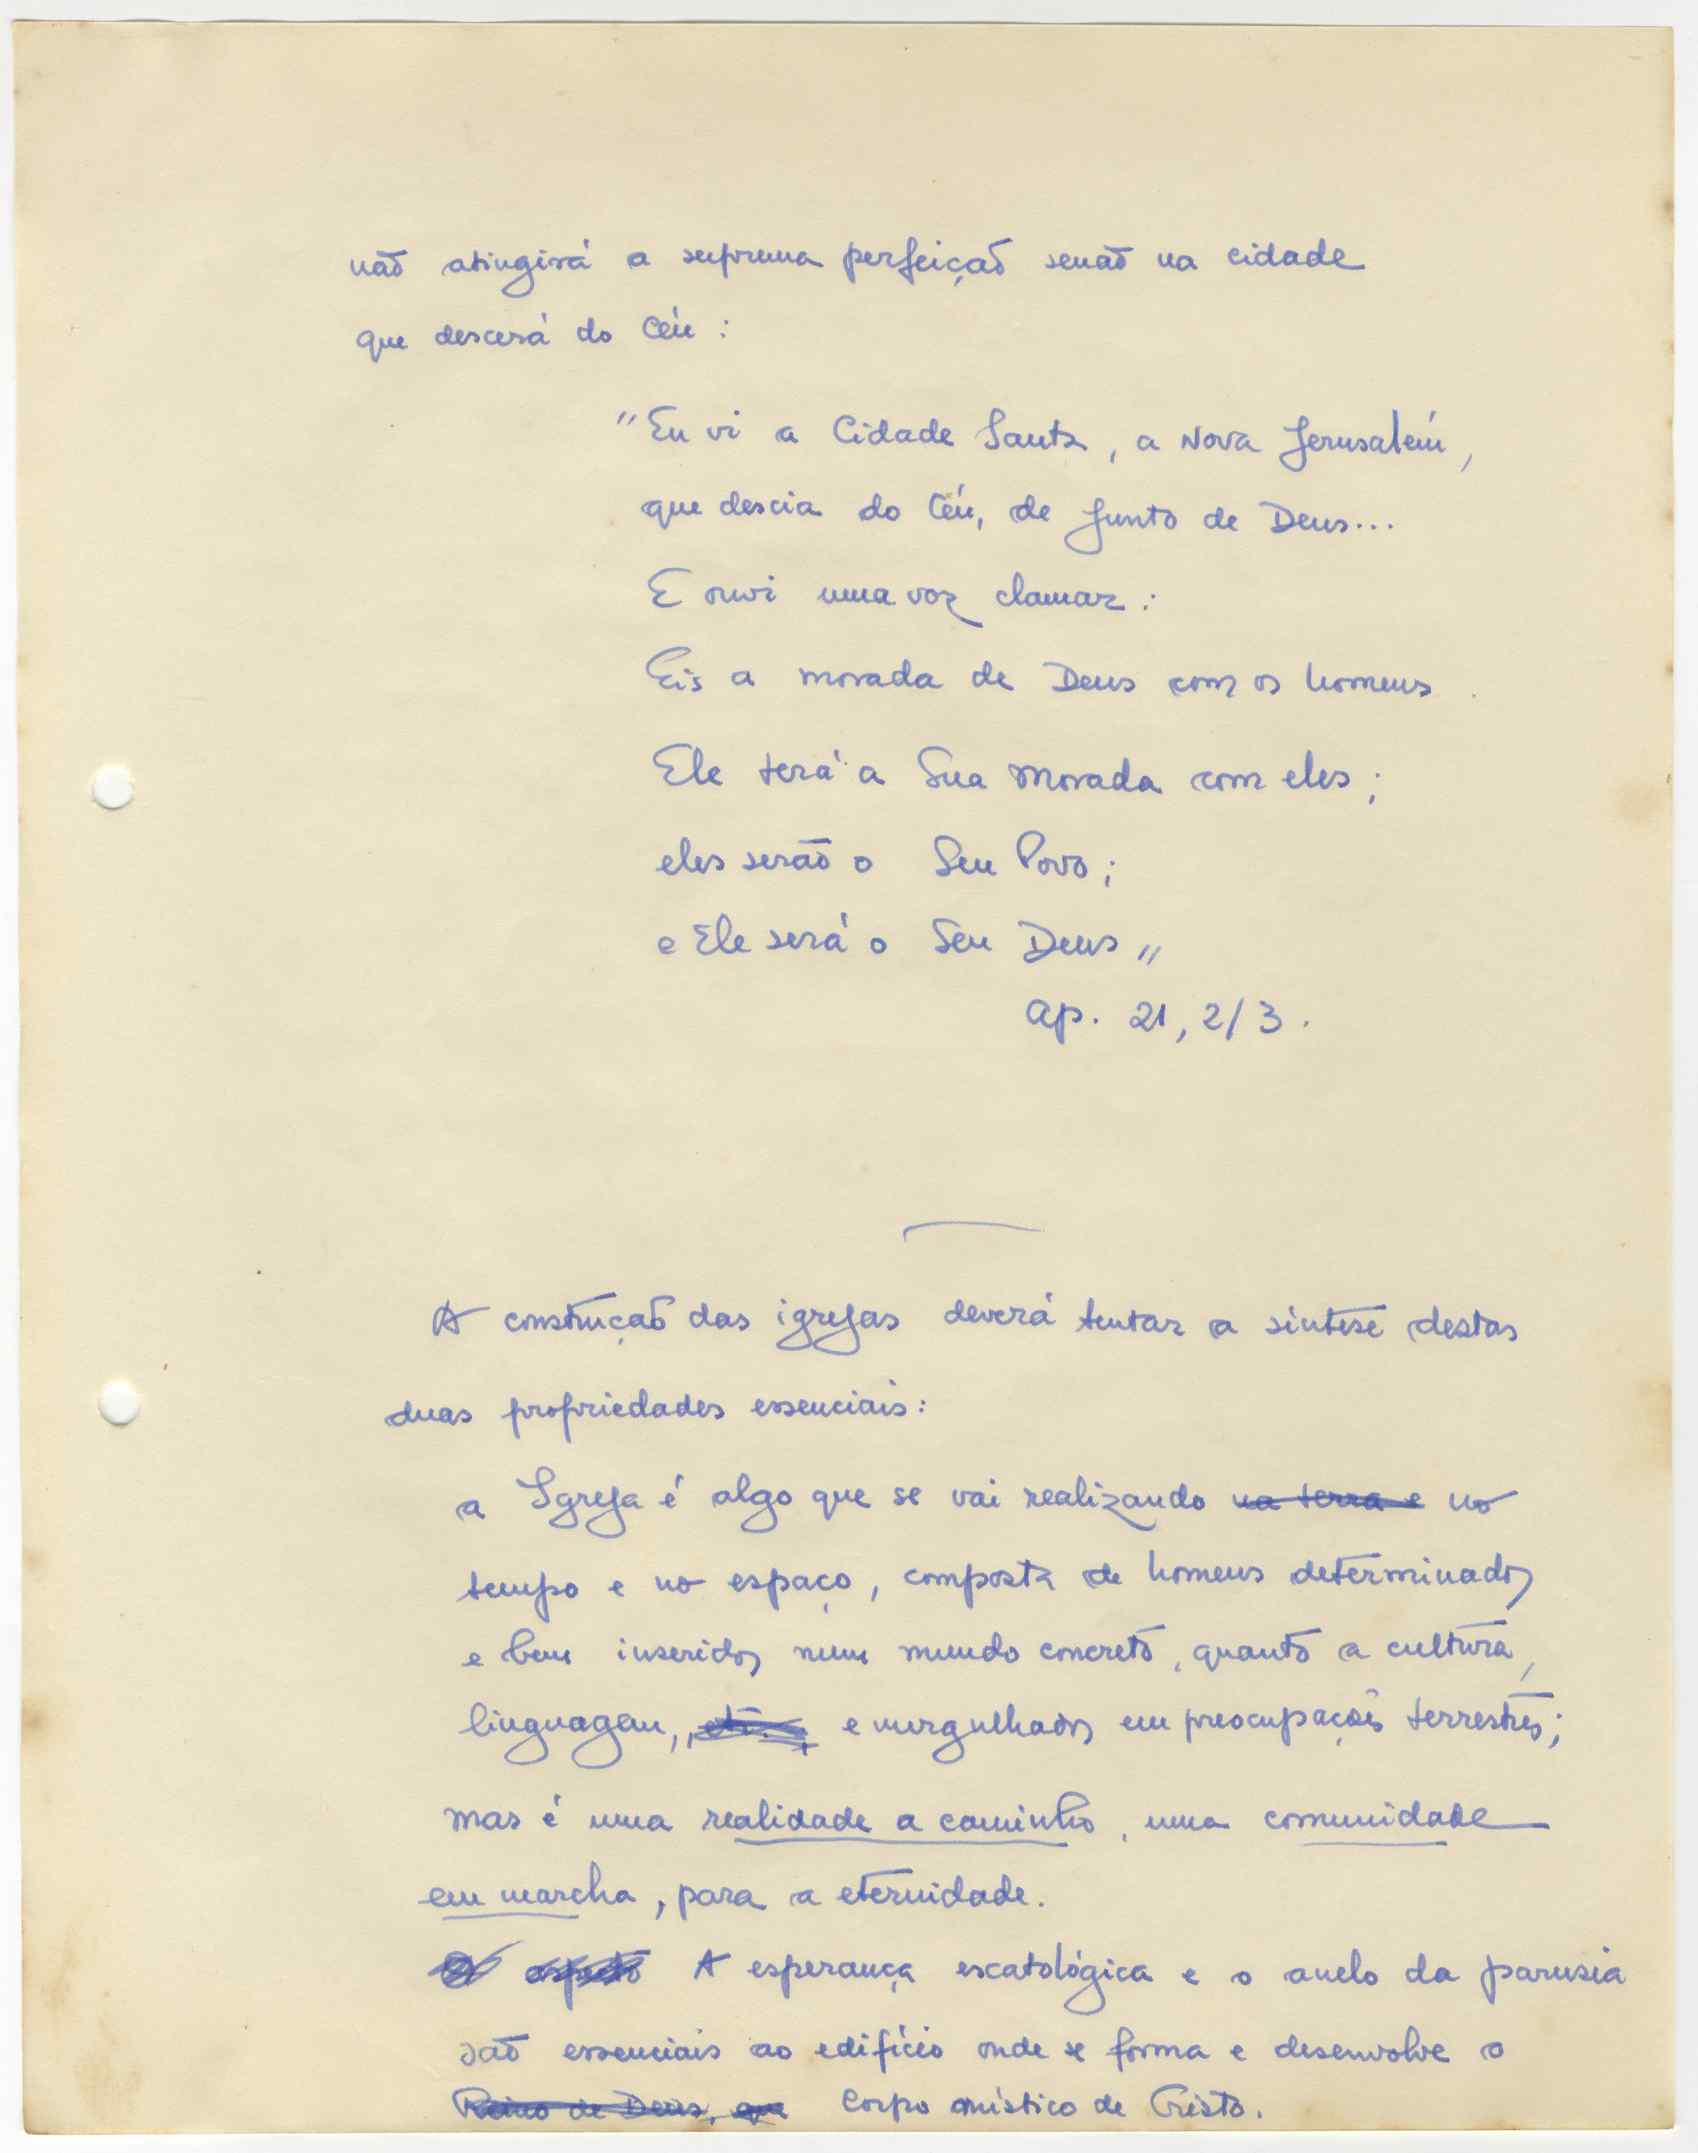 não atingirá a suprema perfeição senão na cidade
que descerá do Céu :
"Eu vi a Cidade Santa, a Nova Jerusalém,
que descia do Céu, de junto de Deus...
E ouvi uma voz clamar :
Eis a morada de Deus com os homens.
Ele terá a Sua morada com eles ;
eles serão o Seu Povo ;
e Ele será o Seu Deus"
Ap. 21, 2/3.
A construção das igrejas deverá tentar a síntese destas
duas propriedades essenciais :
a Igreja é algo que se vai realizando na terra e no
tempo e no espaço, composta de homens determinados
e bem inseridos num mundo concreto, quanto a cultura,
linguagem, etc., e mergulhados em preocupações terrestres;
mas é uma realidade a caminho, uma comunidade
em marcha, para a eternidade.
O aspecto A esperança escatológica e o anelo da parusia
são essenciais ao edifício onde se forma e desenvolve o
Reino de Deus, que Corpo místico de Cristo.